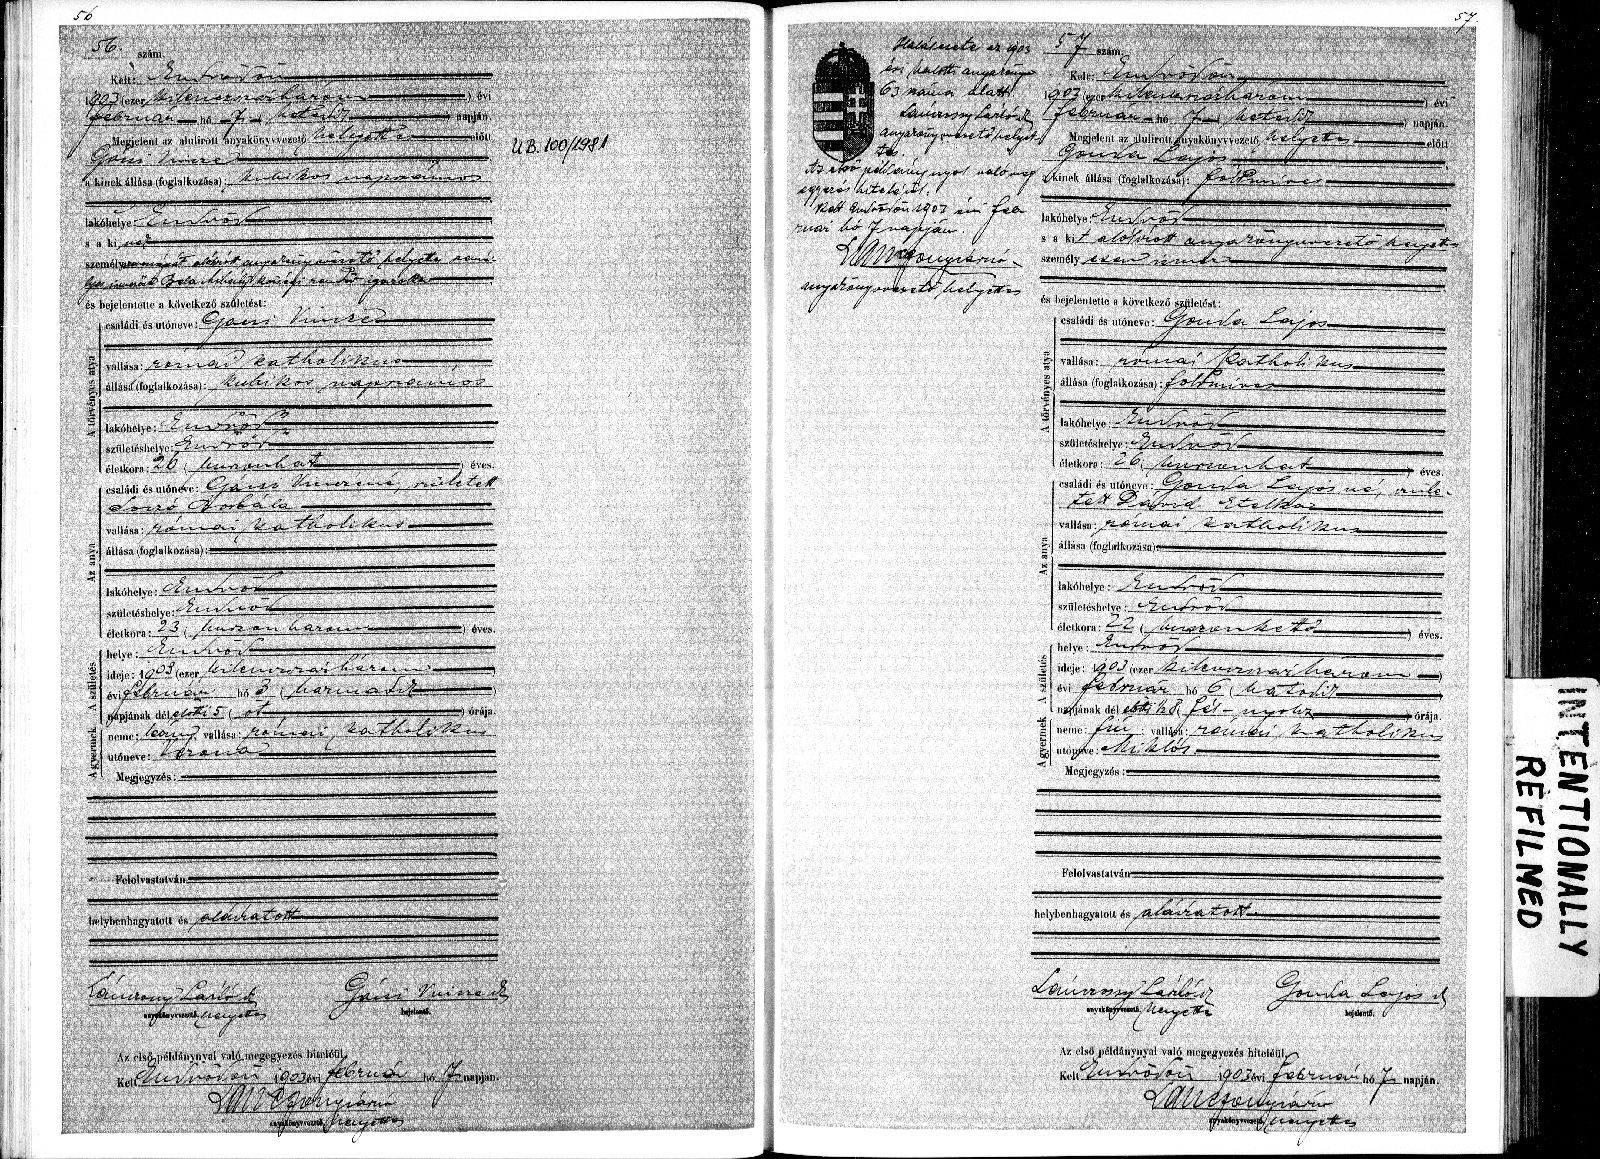 56
56. szám.
Kelt: Endrődön
1903 (ezer kilenczszázhárom) évi
február hó 7 hetedik napján.
Megjelent az alulirott anyakönyvvezető helyettes előtt
Gácsi Vincze
a kinek állása (foglalkozása): kubikos napszámos
lakóhelye: Endrőd
s a ki
személy
és bejelentette a következő születést:
A törvényes atya
családi és utóneve: Gácsi Vincze
vallása: római katholikus
állása (foglalkozása): kubikos napszámos
lakóhelye: Endrőd
születéshelye: Endrőd
életkora: 26 (huszonhat) éves.
Az anya
családi és utóneve: Gácsi Vinczéné, született
Borbála
vallása: római katholikus
állása (foglalkozása):
lakóhelye: Endrőd
születéshelye: Endrőd
életkora: 23 (huszonhárom) éves.
A születés
helye: Endrőd
ideje: 1903 (ezer kilenczszázhárom)
évi február hó 3 (harmadik)
napjának dél előtti 5 (öt) órája.
A gyermek
neme: leány vallása: római katholikus
utóneve:
Megjegyzés:
Felolvastatván
helybenhagyatott és aláíratott
anyakönyvvezető helyettes
Gácsi Vincze
bejelentő.
Az első példánynyal való megegyezés hiteléül.
Kelt Endrődön 1903 évi február hó 7 napján.
anyakönyvvezető helyettes
UB. 100/1981
57.
Halálesete az 1903
évi halotti anyakönyv
63 száma alatt.
anyakönyvvezető helyet-
tes.
Az első példánynyal való meg
egyezés hiteléül.
Kelt Endrődön 1903 évi feb
ruár hó 7 napján.
anyakönyvvezető helyettes
57 szám.
Kelt: Endrődön
1903 (ezer kilenczszázhárom) évi
február hó 7 hetedik napján.
Megjelent az alulirott anyakönyvvezető helyettes előtt
Gonda Lajos
a kinek állása (foglalkozása): földmíves
lakóhelye: Endrőd
s a kit alólírott anyakönyvvezető helyettes
személyesen ismer
és bejelentette a következő születést:
A törvényes atya
családi és utóneve: Gonda Lajos
vallása: római katholikus
állása (foglalkozása): földmíves
lakóhelye: Endrőd
születéshelye: Endrőd
életkora: 26 (huszonhat) éves.
Az anya
családi és utóneve: Gonda Lajosné, szüle-
tett Dávid Etelka
vallása: római katholikus
állása (foglalkozása):
lakóhelye: Endrőd
születéshelye: Endrőd
életkora: 22 (huszonkettő) éves.
A születés
helye: Endrőd
ideje: 1903 (ezer kilenczszázhárom)
évi február hó 6 (hatodik)
napjának dél előtti ½8 (fél-nyolcz) órája.
A gyermek
neme: fiú vallása: római katholikus
utóneve: Miklós
Megjegyzés:
Felolvastatván
helybenhagyatott és aláíratott
anyakönyvvezető helyettes
Gonda Lajos
bejelentő.
Az első példánynyal való megegyezés hiteléül.
Kelt Endrődön 1903 évi február hó 7 napján.
anyakönyvvezető helyettes
INTENTIONALLY
REFILMED